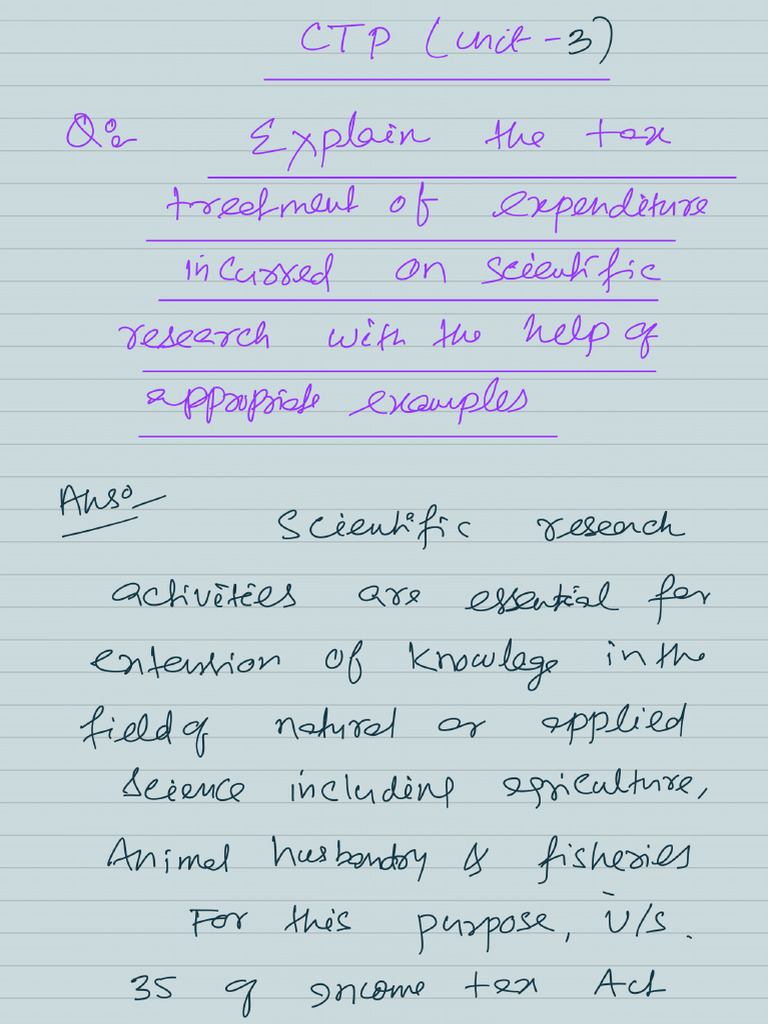 CTP (unit-3)
Q:- Explain the tax
treatment of expenditure
incurred on scientific
research with the help of
appropriate examples
Ans:-
Scientific research
activities are essential for
extension of Knowlage in the
field of natural or applied
science including agriculture,
Animal husbandry & fisheries
For this purpose, U/s.
35 of income tax Act